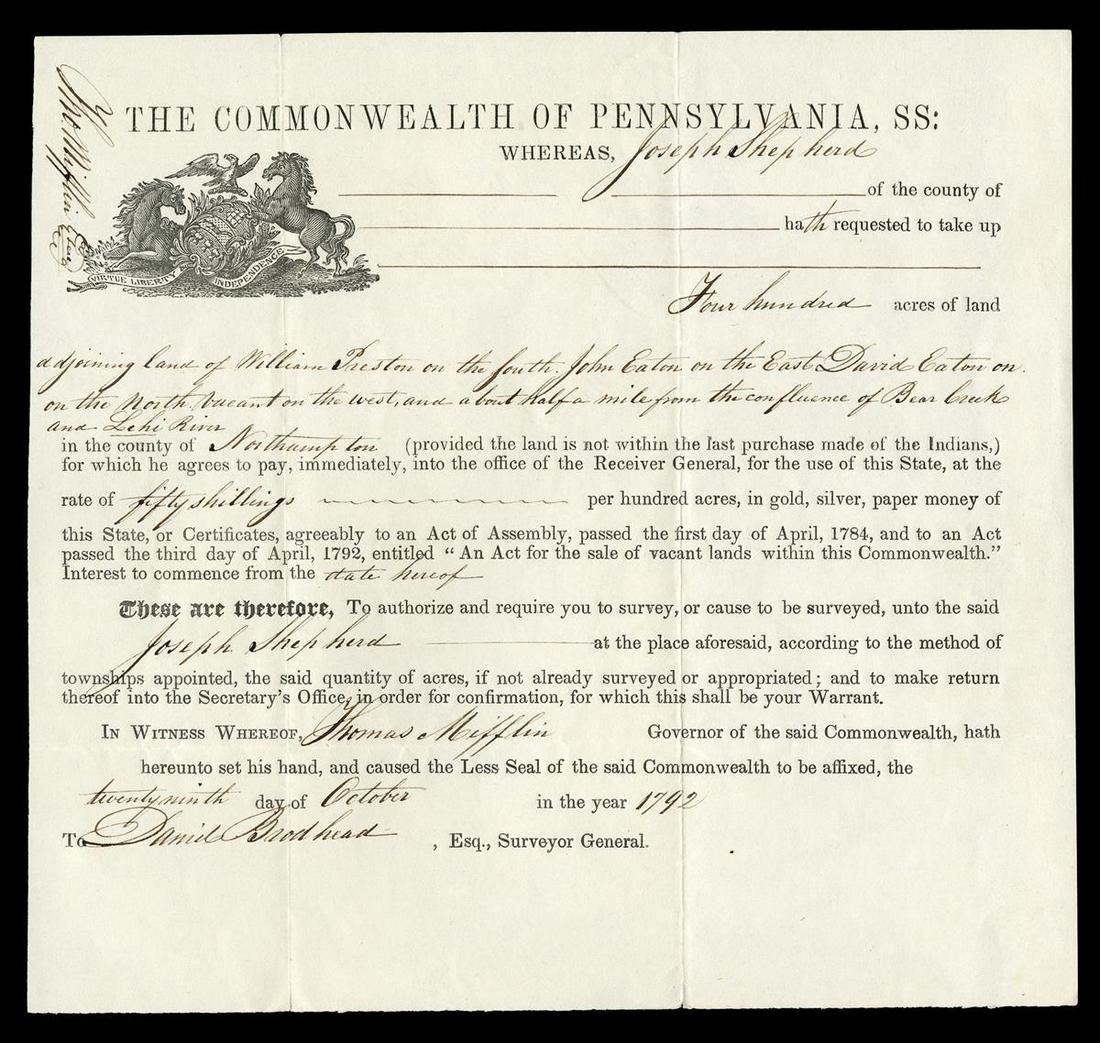 Tho Mifflin
THE COMMONWEALTH OF PENNSYLVANIA, SS:
WHEREAS, Joseph Shepherd
of the county of
hath requested to take up
VIRTUE LIBERTY INDEPENDENCE
Four hundred acres of land
adjoining land of William Preston on the South. John Eaton on the East David Eaton on.
on the North, Vacant on the west, and about half a mile from the confluence of Bear Creek
and Lehi River
in the county of Northampton (provided the land is not within the last purchase made of the Indians,)
for which he agrees to pay, immediately, into the office of the Receiver General, for the use of this State, at the
rate of fifty shillings per hundred acres, in gold, silver, paper money of
this State, or Certificates, agreeably to an Act of Assembly, passed the first day of April, 1784, and to an Act
passed the third day of April, 1792, entitled “An Act for the sale of vacant lands within this Commonwealth.”
Interest to commence from the date hereof
These are therefore, To authorize and require you to survey, or cause to be surveyed, unto the said
Joseph Shepherd at the place aforesaid, according to the method of
townships appointed, the said quantity of acres, if not already surveyed or appropriated; and to make return
thereof into the Secretary's Office, in order for confirmation, for which this shall be your Warrant.
IN WITNESS WHEREOF, Thomas Mifflin Governor of the said Commonwealth, hath
hereunto set his hand, and caused the Less Seal of the said Commonwealth to be affixed, the
twenty ninth day of October in the year 1792
To Daniel Brodhead, Esq., Surveyor General.